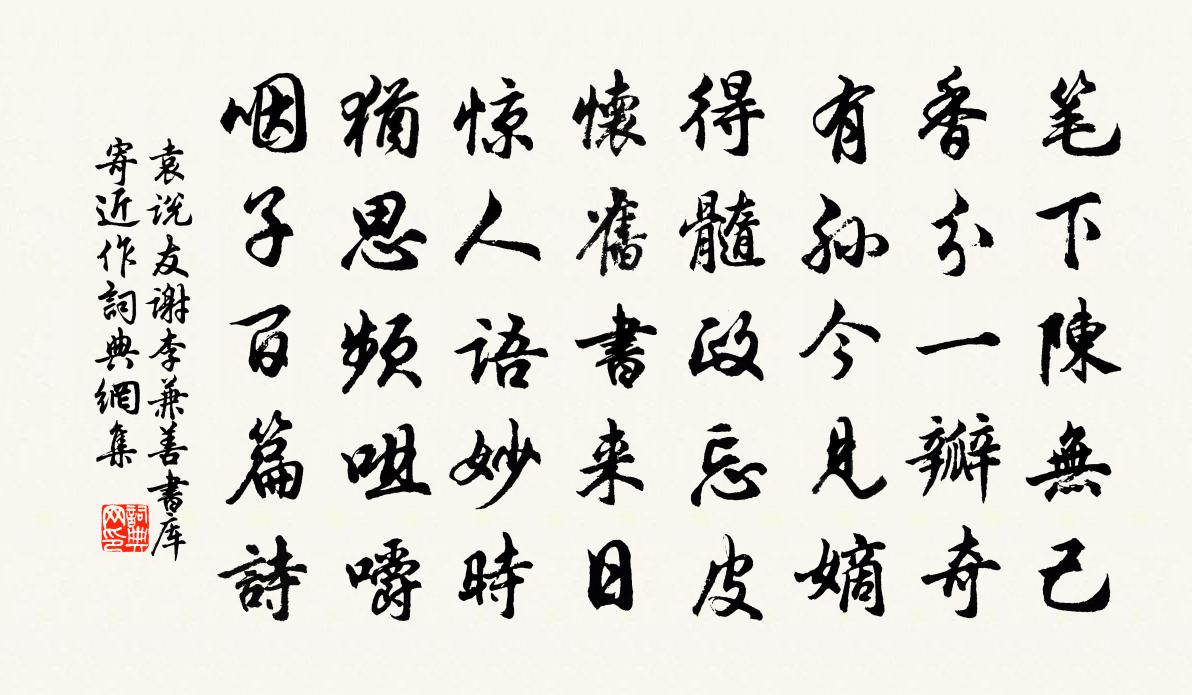 笔下陳無己
香分一瓣奇
有孙今見嫡
得髓政忘皮
懷舊書来日
惊人語妙時
猶思頻咀嚼
咽子百篇詩
袁说友谢李兼善書库
寄近作詞典網集
詞典
网印